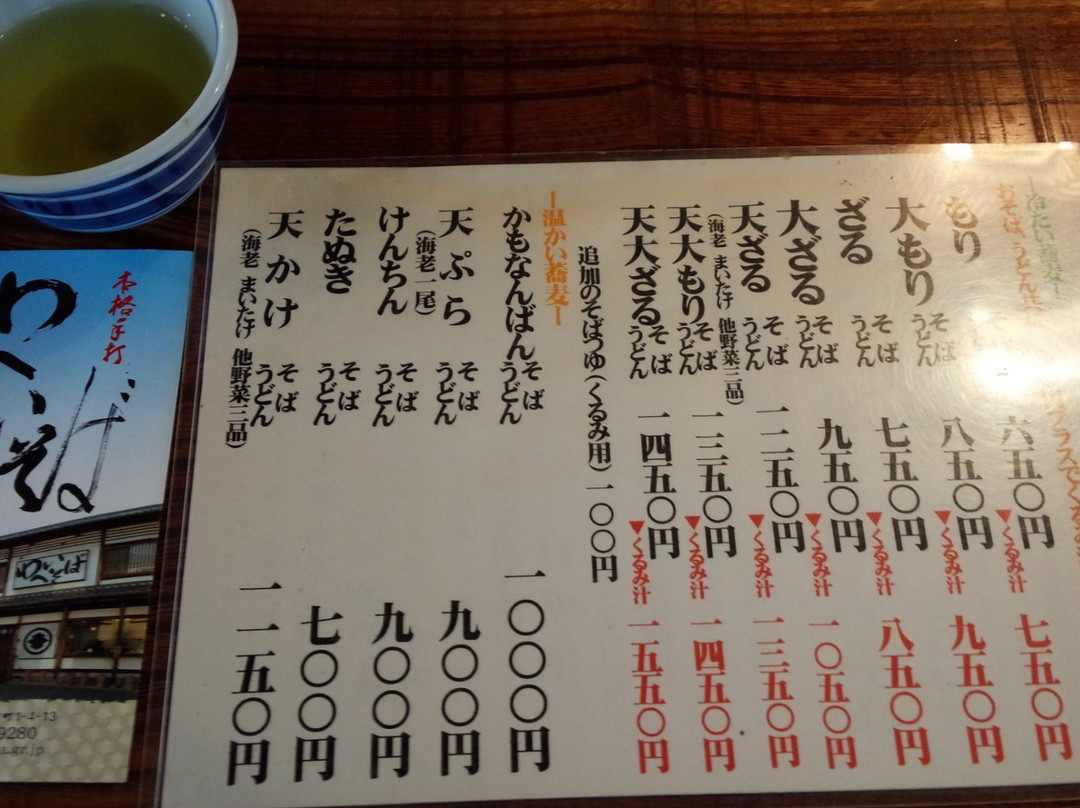 ー冷たい蕎麦ー
おそば、うどん共
プラスでくる
もり 六五〇円 ▼くるみ汁 七五〇円
大もり そば うどん 八五〇円 ▼くるみ汁 九五〇円
ざる そば うどん 七五〇円 ▼くるみ汁 八五〇円
大ざる そば うどん 九五〇円 ▼くるみ汁 一〇五〇円
天ざる そば うどん 一二五〇円 ▼くるみ汁 一三五〇円
(海老 まいたけ 他野菜三品)
天大もり そば うどん 一三五〇円 ▼くるみ汁 一四五〇円
天大ざる そば うどん 一四五〇円 ▼くるみ汁 一五五〇円
追加のそばつゆ(くるみ用)一〇〇円
ー温かい蕎麦ー
かもなんばん そば うどん 一〇〇〇円
天ぷら そば うどん 九〇〇円
(海老一尾)
けんちん そば うどん 九〇〇円
たぬき そば うどん 七〇〇円
天かけ そば うどん 一一五〇円
(海老 まいたけ 他野菜三品)
本格手打
わくいそば
わくいそば
町1-4-13
9280
a.gr.jp